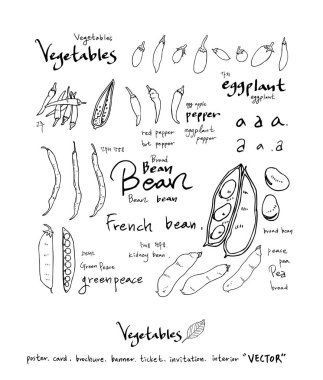 Vegetables
Vegetables
가지
eggplant
eggplant
egg apple
pepper
eggplant
pepper
red pepper
hot pepper
a a a.
a a .a
Broad
Bean
Bean
Bean bean
French bean.
kidney bean.
broad bean
Green Peace
greenpeace
peace
pea
Pea
broad
Vegetables
poster. card. brochure. banner. ticket. invitation. interior "VECTOR"